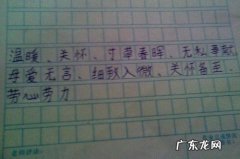 温暖、关怀、寸草春晖、无知奉献
母爱无言、细致入微、关怀备至
劳心劳力
广东龙网